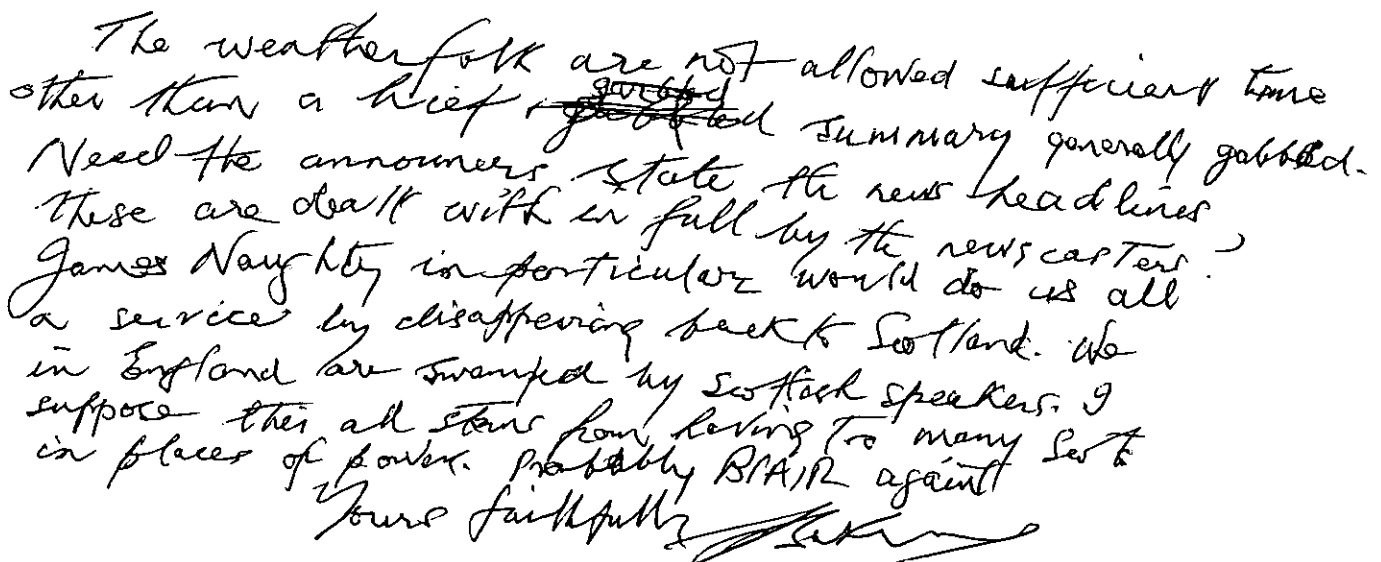 The weatherfolk are not allowed sufficient time
other than a brief summary generally gabbled.
Need the announcers state the news headlines
these are dealt with in full by the newscasters?
James Naughty in particular would do us all
a service by disappearing back to Scotland. We
in England are swamped by scottish speakers. I
suppose this all stems from having too many Scots
in places of power. Probably BLAIR against
Yours faithfully